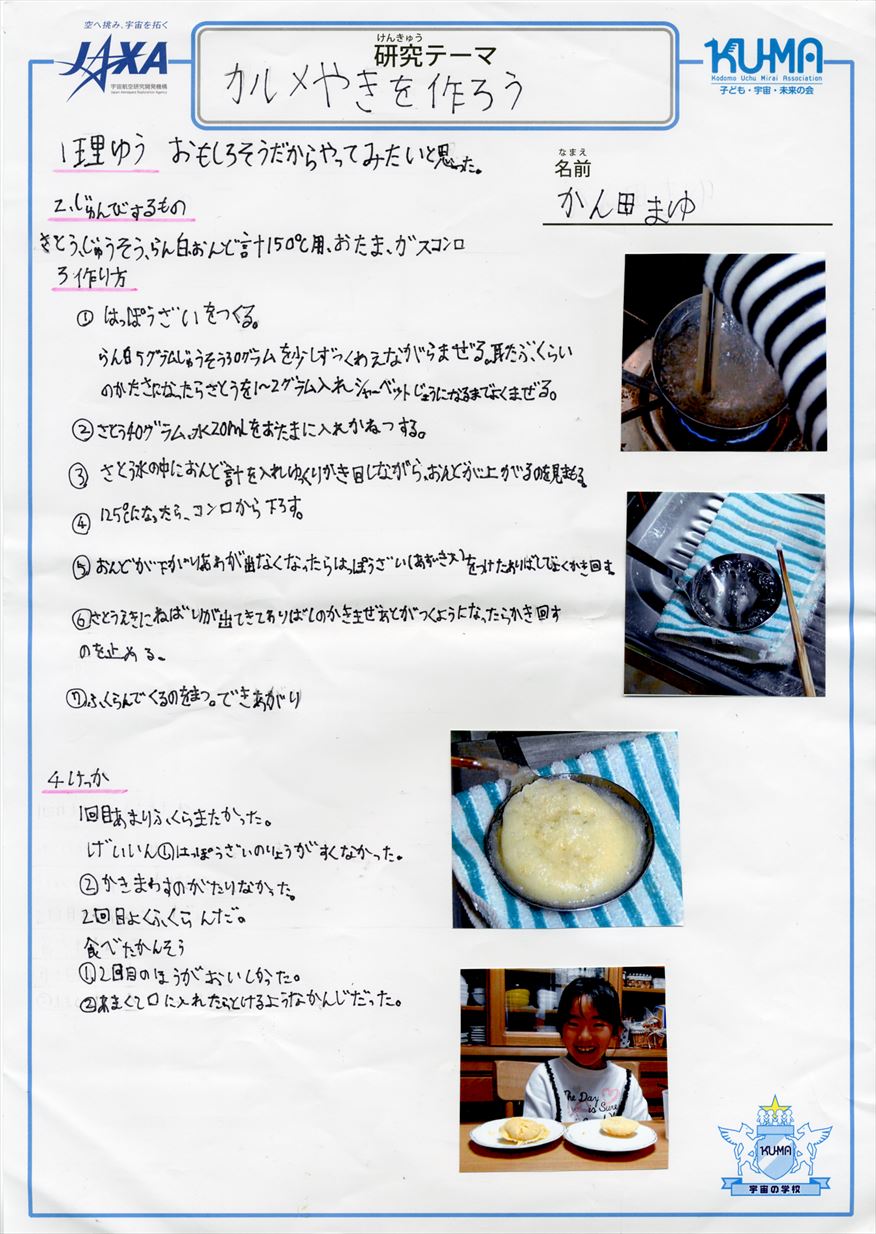 空へ挑み、宇宙を拓く
JAXA
宇宙航空研究開発機構
Japan Aerospace Exploration Agency
けんきゅう
研究テーマ
カルメやきを作ろう
KU-MA
Kodomo Uchu Mirai Association
子ども・宇宙・未来の会
1理ゆう おもしろそうだからやってみたいと思った。
なまえ
名前
かん田まゆ
2.じゅんびするもの
さとう、じゅうそう、らん白、おんど計150℃用、おたま、ガスコンロ
3作り方
① はっぽうざいをつくる。
らん白5グラムじゅうそう30グラムを少しずつくわえながらまぜる。耳たぶくらい
のかたさになったらさとうを1~2グラム入れシャーベットじょうになるまでよくまぜる。
②さとう40グラム、水20mLをおたまに入れかねつする。
③ さとう水の中におんど計を入れゆくりかき回しながら、おんどが上がるのを見まもる。
④ 125℃になったら、コンロから下ろす。
⑤おんどが下がりあわが出なくなったらはっぽうざい(あずき大)をつけたわりばしでよくかき回す。
⑥さとうえきにねばりが出てきてわりばしのかきまぜあとがつくようになったらかき回す
のを止める。
⑦ふくらんでくるのをまつ。できあがり
4.けっか
1回目あまりふくらまなかった。
げいいん①はっぽうざいのりょうがすくなかった。
②かきまわすのがたりなかった。
2回目よくふくらんだ。
食べたかんそう
①2回目のほうがおいしかった。
②あまくて口に入れたらとけるようなかんじだった。
The Day
is Sure
KU-MA
宇宙の学校